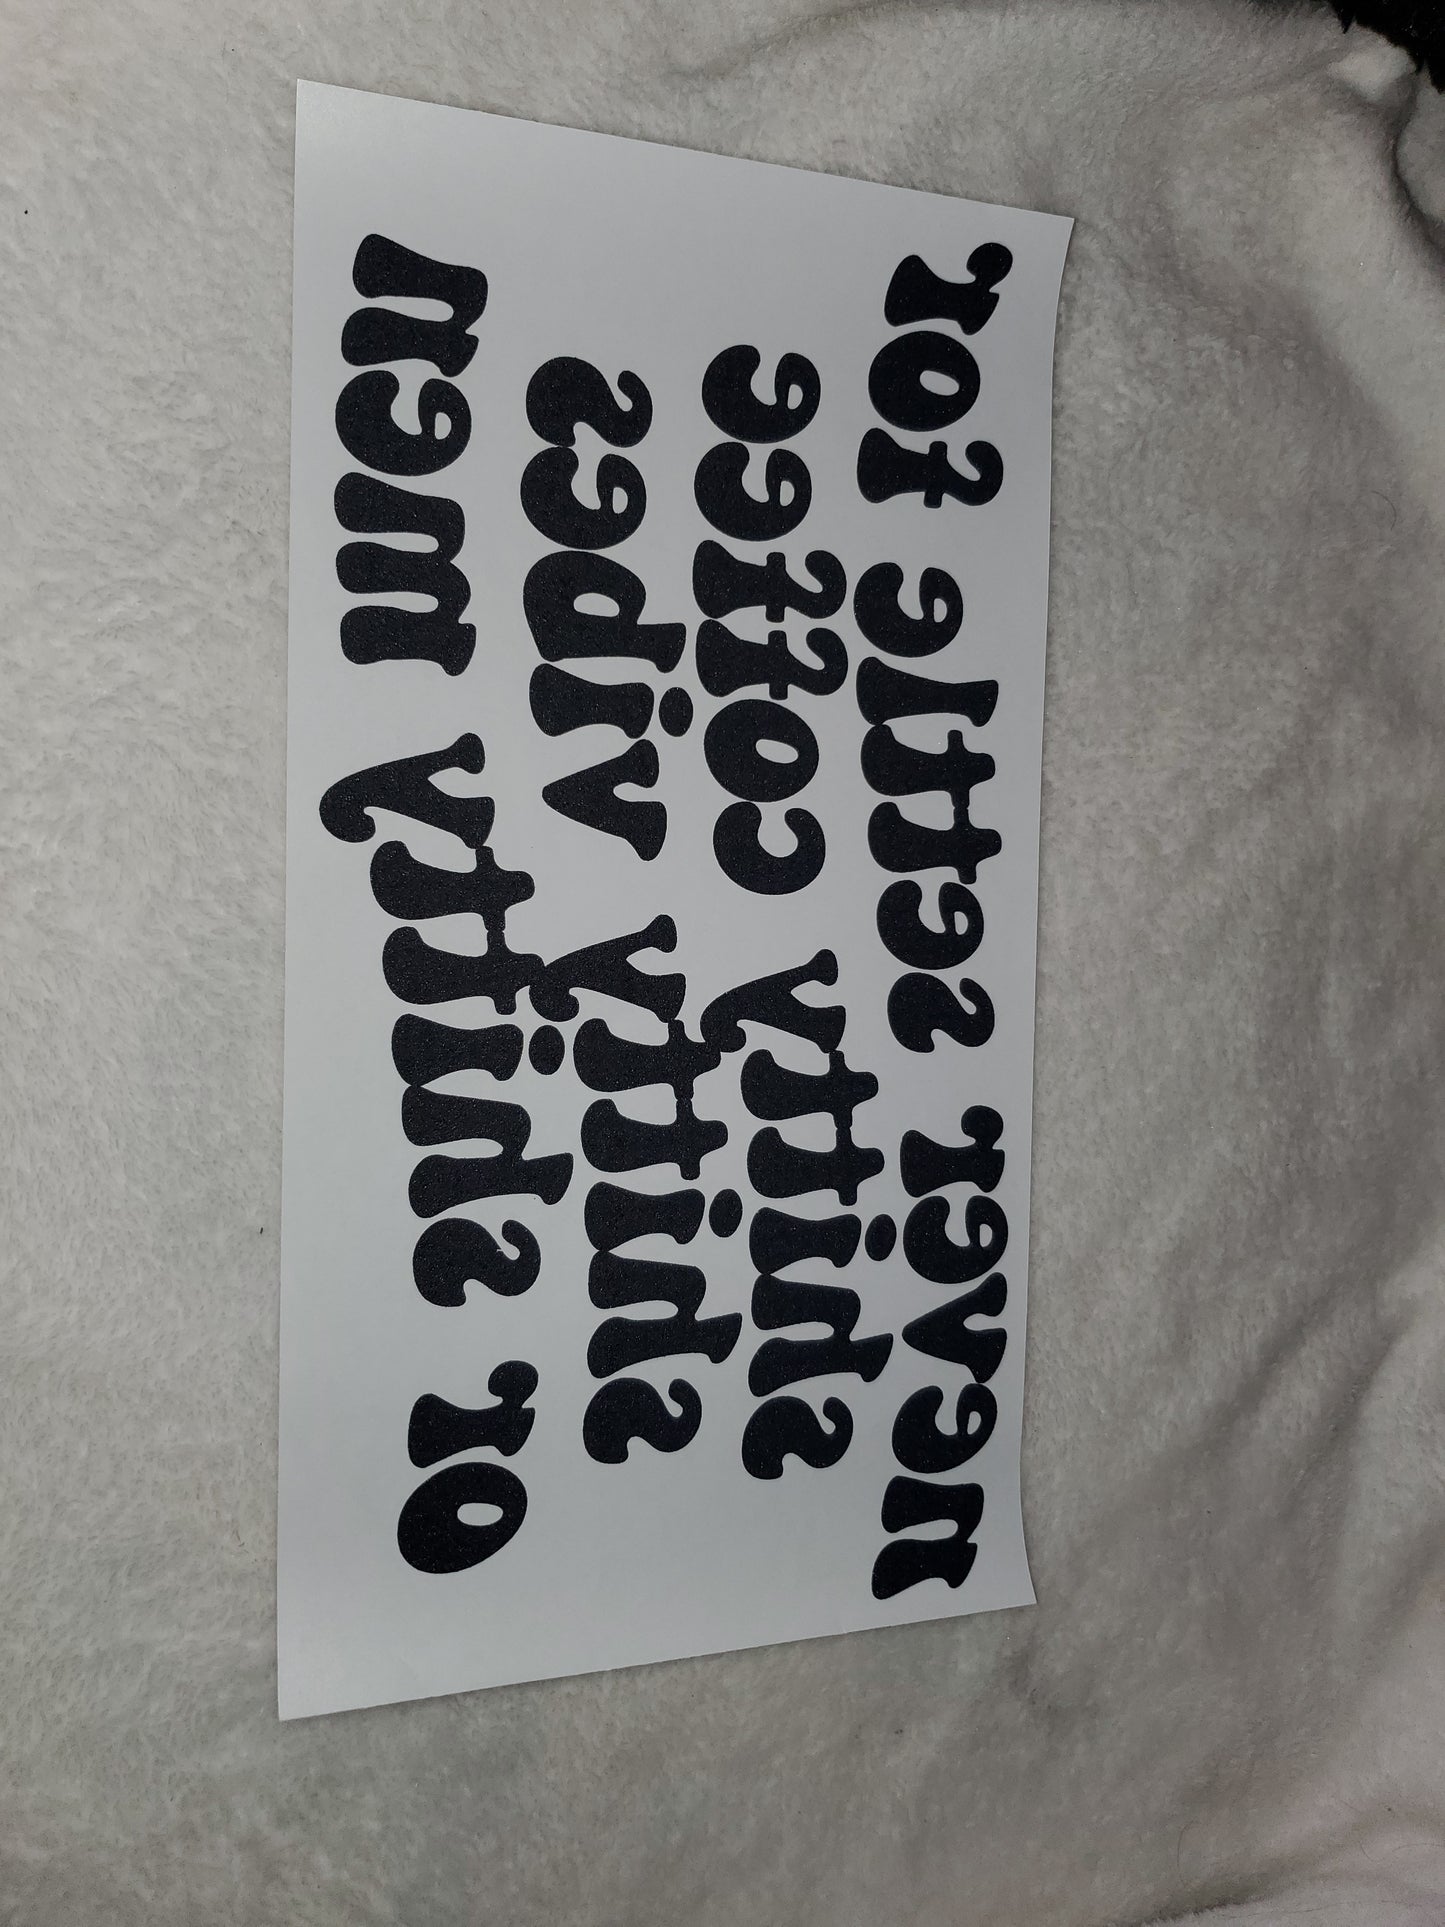 never settle for
shitty coffee
shitty vibes
or shitty men